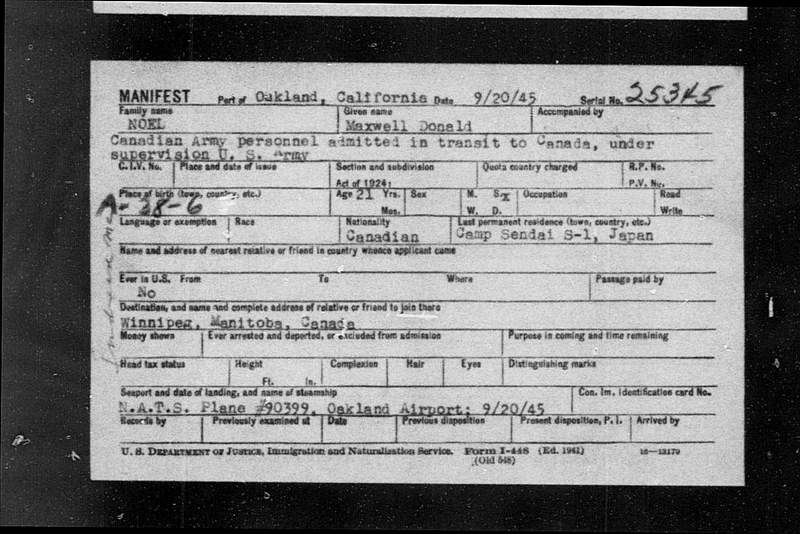 MANIFEST Port of Oakland, California Date 9/20/45 Serial No. 25345
Family name Given name Accompanied by
NOEL Maxwell Donald
Canadian Army personnel admitted in transit to Canada, under
supervision U. S. Army
C.I.V. No. Place and date of issue Section and subdivision Quota country charged R.P. No.
Act of 1924: P.V. No.
Place of birth (town, country, etc.) Age 21 Yrs. Sex M. S. X Occupation Read
A-38-6 Mos. W. D. Write
Language or exemption Race Nationality Last permanent residence (town, country, etc.)
Canadian Camp Sendai S-1, Japan
Name and address of nearest relative or friend in country whence applicant came
Ever in U.S. From To Where Passage paid by
No
Destination, and name and complete address of relative or friend to join there
Winnipeg, Manitoba, Canada
Money shown Ever arrested and deported, or excluded from admission Purpose in coming and time remaining
Head tax status Height Complexion Hair Eyes Distinguishing marks
Ft. In.
Seaport and date of landing, and name of steamship Con. Im. Identification card No.
N.A.T.S. Plane #90399, Oakland Airport; 9/20/45
Records by Previously examined at Date Previous disposition Present disposition, P. I. Arrived by
U. S. DEPARTMENT OF JUSTICE, Immigration and Naturalization Service. Form I-448 (Ed. 1941) 16—13179
(Old 548)